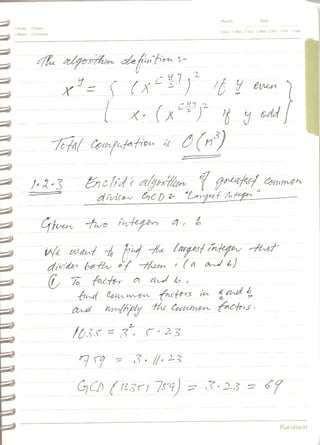 The algorithm definition :-
x^y = { (x^[y/2])^2 if y even
x. (x^[y/2])^2 if y odd }
Total Computation is O(n^3)
1.2.3 Euclid's algorithm of greatest common
divisor GCD & "Largest Integer"
Given two integers a, b
We want to find the largest integer that
divides both of them, (a and b)
① To factor a and b.
find common factors in a and b
and multiply the common factors.
1035 = 3^2. 5. 23
759 = 3. 11. 23
GCD (1035, 759) = 3.23 = 69